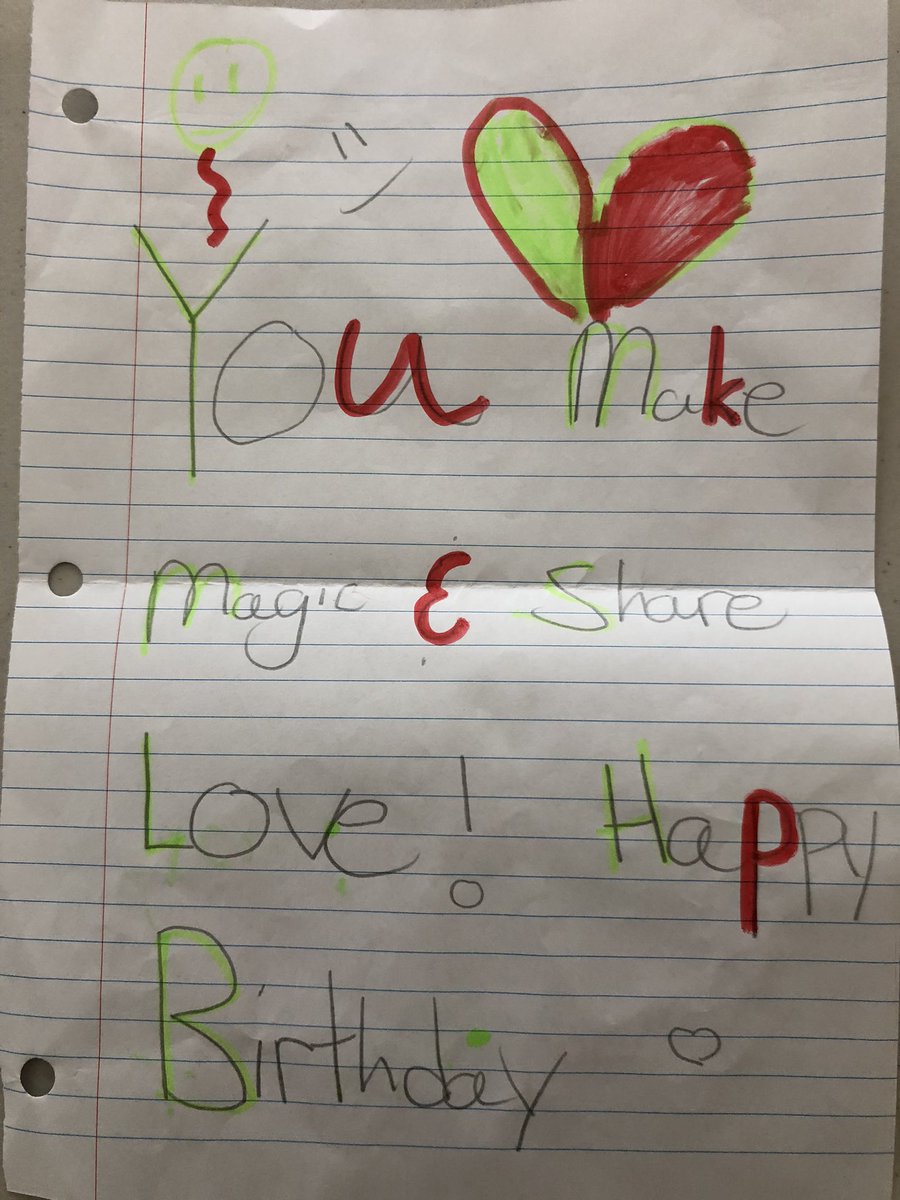 You Make
Magic & Share
Love! Happy
Birthday